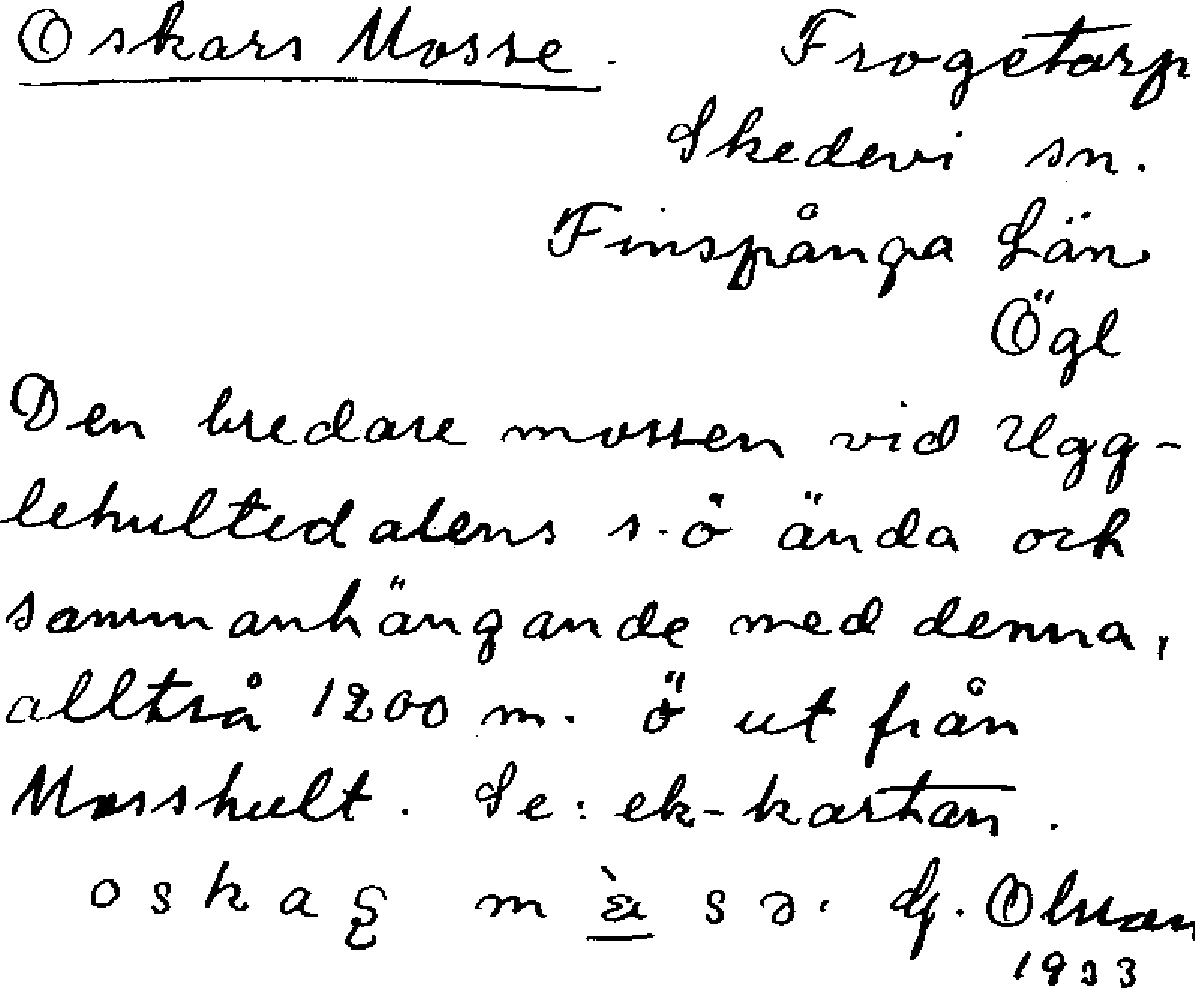 Oskars Mosse. Frogetorp
Skedevi sn.
Finspånga Län
Ögl
Den bredare mossen vid Ugg-
lehultedalens s.ö ända och
sammanhängande med denna,
alltså 1200 m. ö ut från
Mosshult. Se: ek-kartan.
oskaʂ m sə. Olsson
1933